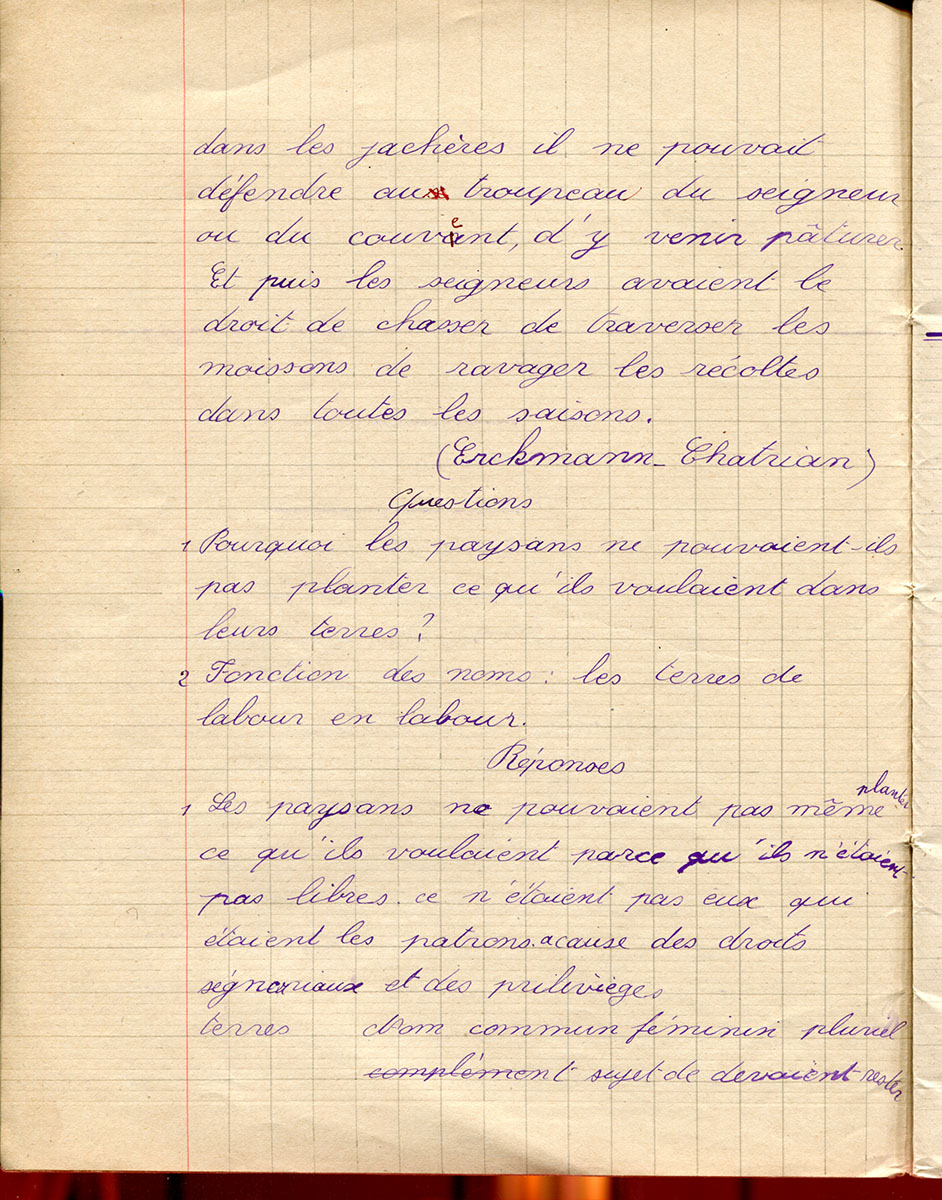 dans les jachères il ne pouvait
défendre aux troupeau du seigneur
ou du couvent, d'y venir pâturer.
Et puis les seigneurs avaient le
droit de chasser de traverser les
moissons de ravager les récoltes
dans toutes les saisons.
(Erckmann-Chatrian)
Questions
1 Pourquoi les paysans ne pouvaient-ils
pas planter ce qu'ils voulaient dans
leurs terres ?
2 Fonction des noms : les terres de
labour en labour.
Réponses
1 Les paysans ne pouvaient pas même planter
ce qu'ils voulaient parce qu'ils n'étaient
pas libres. ce n'étaient pas eux qui
étaient les patrons. acause des droits
ségneuriaux et des prilivièges
terres Nom commun féminin pluriel
complément sujet de devaient rester